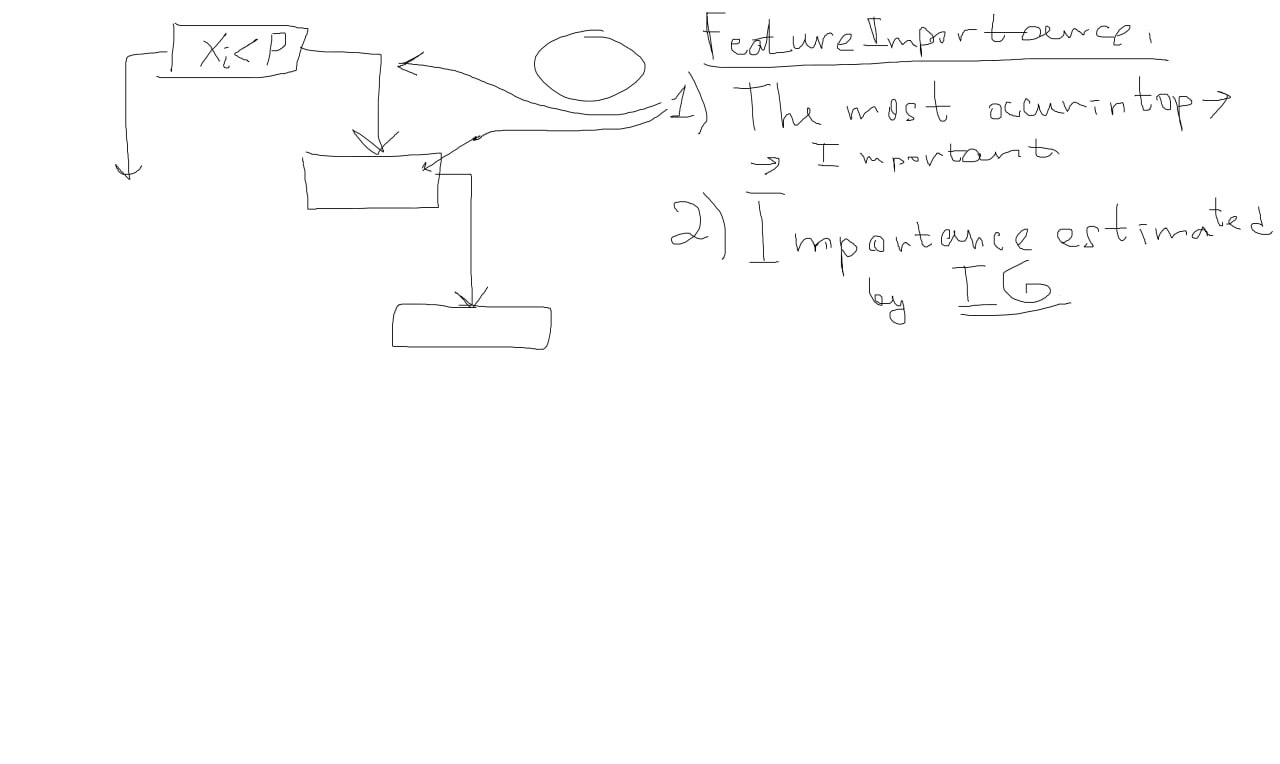 Xi < P
Feature Importance.
1) The most occur in top →
→ Important
2) Importance estimated
by IG